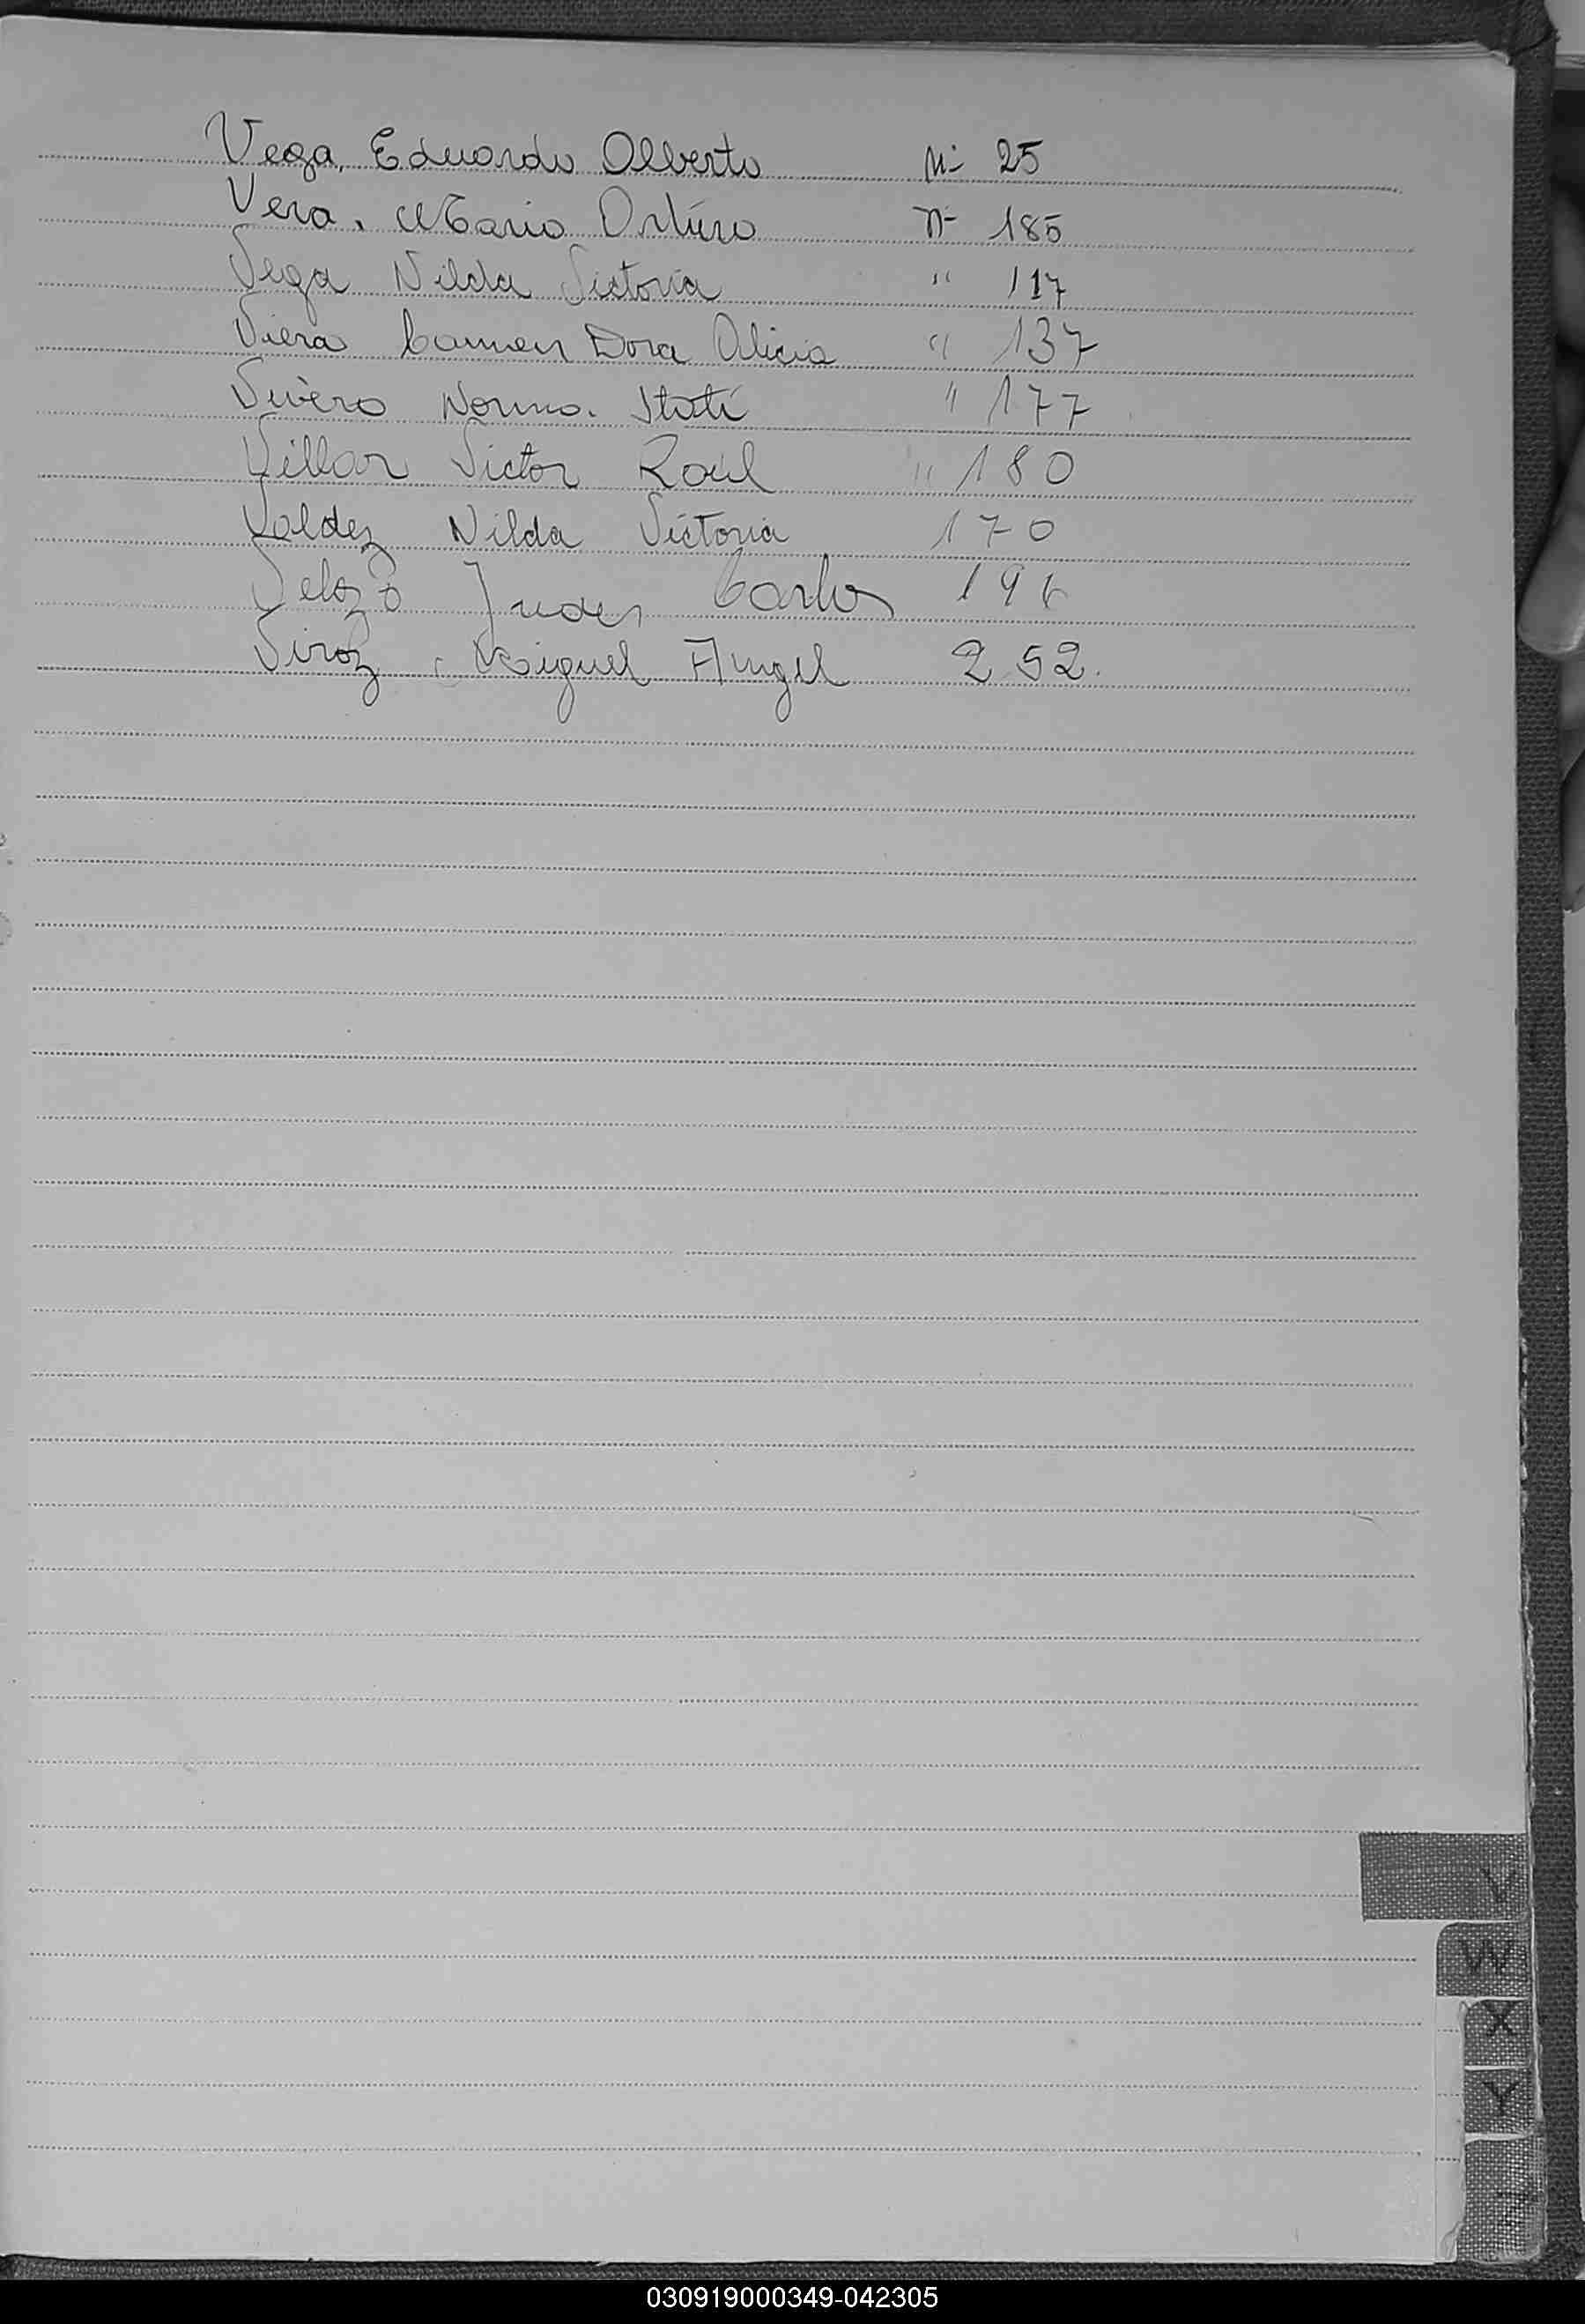 Vega, Eduardo Alberto Nº 25
Vera, Mario Artúro Nº 185
Vega Nilda Victoria " 117
Viera Carmen Dora Alicia " 137
Vivero Norma Itatí " 177
Villar Victor Raúl " 180
Valdez Nilda Victoria 170
Velozo Juan Carlos 196
Miguel Angel 252.
V
W
X
Y
Z
030919000349-042305